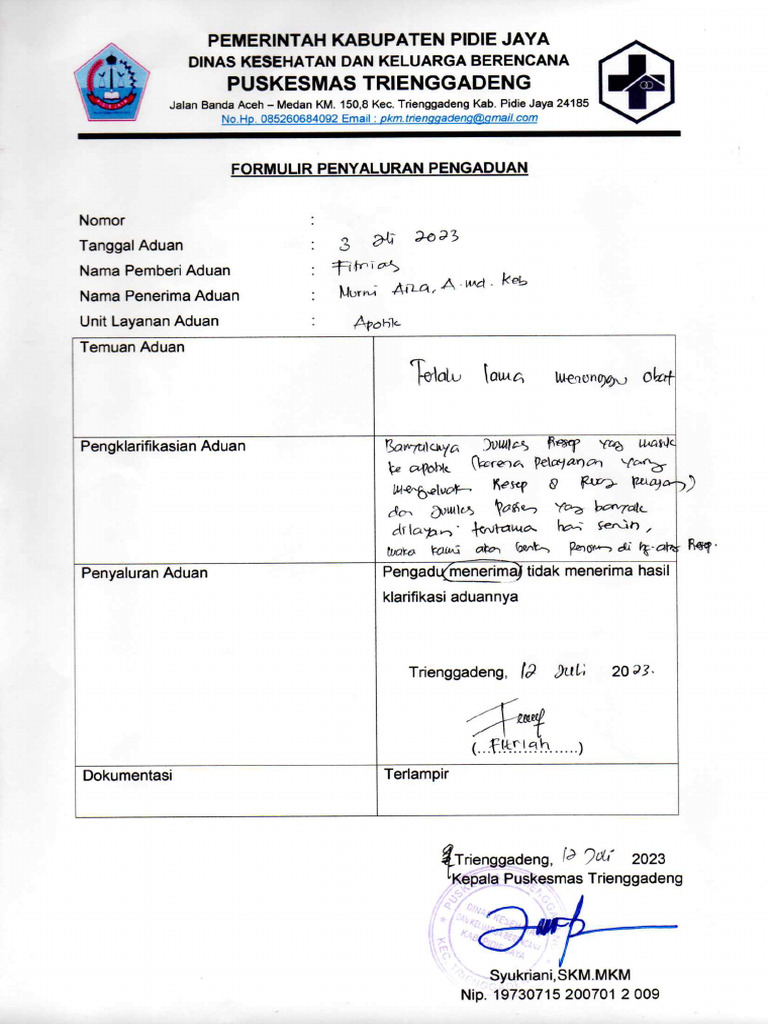 PEMERINTAH KABUPATEN PIDIE JAYA
DINAS KESEHATAN DAN KELUARGA BERENCANA
PUSKESMAS TRIENGGADENG
Jalan Banda Aceh – Medan KM. 150,8 Kec. Trienggadeng Kab. Pidie Jaya 24185
No.Hp. 085260684092 Email : pkm.trienggadeng@gmail.com
FORMULIR PENYALURAN PENGADUAN
Nomor :
Tanggal Aduan : 3 Juli 2023
Nama Pemberi Aduan : Fitriah
Nama Penerima Aduan : Murni Aiza, A.md. Keb
Unit Layanan Aduan : Apotik
Temuan Aduan
Terlalu lama menunggu obat
Pengklarifikasian Aduan
Banyaknya Jumlah Resep yag masuk
ke apotik (karena pelayanan yang
mengeluarkan Resep 8
dan Jumlah Pasien yag banyak
dilayani terutama hari senin,
maka kami akan Resep.
Penyaluran Aduan
Pengadu menerima/ tidak menerima hasil
klarifikasi aduannya
Trienggadeng, 12 Juli 2023.
(Fitriah)
Dokumentasi
Terlampir
Trienggadeng, 12 Juli 2023
Kepala Puskesmas Trienggadeng
DINAS KESEHATAN
DAN KELUARGA BERENCANA
KAB. PIDIE JAYA
Syukriani,SKM.MKM
Nip. 19730715 200701 2 009